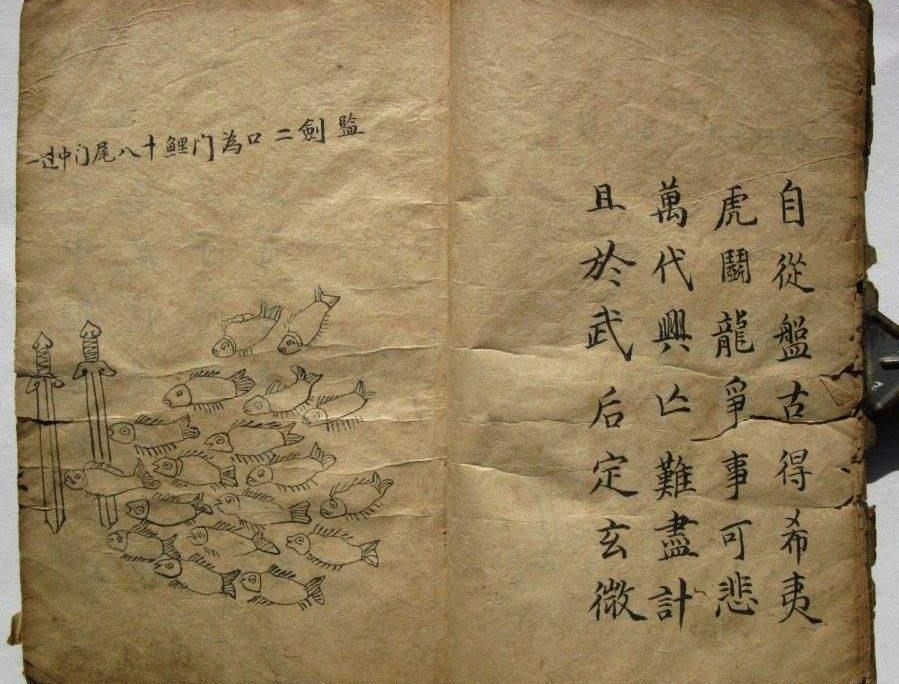 自從盤古得希夷
虎鬪龍爭事可悲
萬代興亾難盡計
且於武后定玄微
監劍二口為门鯉十八尾门中过一